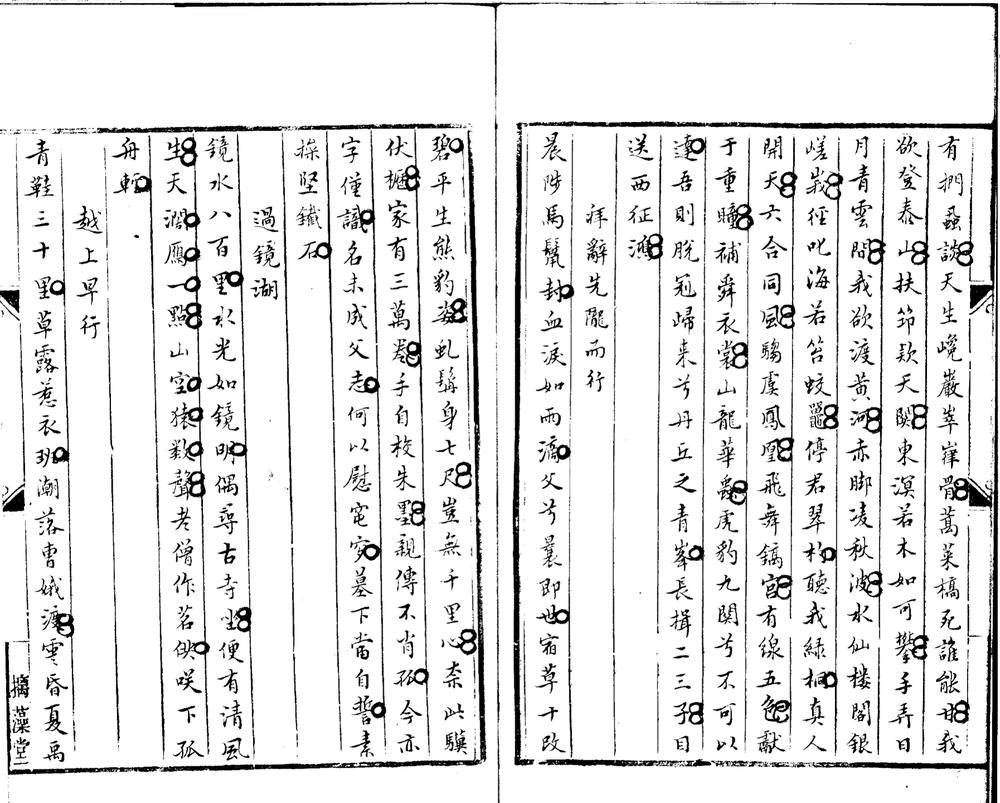 有捫蝨談天生巉巖崒嵂骨萬萊槁死誰能甘我
欲登泰山扶筇欵天關東溟若木如可攀手弄日
月青雲間我欲渡黃河赤脚凌秋波水仙樓閣銀
嵯峩徑叱海若笞蛟鼉停君翠杓聽我綠桐真人
開天六合同風騶虞鳳凰飛舞鎬宫有線五色獻
于重瞳補舜衣裳山龍華蟲虎豹九関兮不可以
達吾則脫冠歸来兮丹丘之青峯長揖二三子目
送西征鴻
拜辭先隴而行
晨陟馬鬛封血淚如雨滴父兮曩即世宿草十改
碧平生熊豹姿虬髯身七尺豈無千里心柰此驥
伏櫪家有三萬卷手自校朱墨親傳不肖孤今亦
字僅識名未成父志何以慰窀穸墓下當自誓素
操堅鐵石
過鏡湖
鏡水八百里水光如鏡明偶尋古寺坐便有清風
生天濶鴈一點山空猿數聲老僧作茗供咲下孤
舟輕
越上早行
青鞋三十里草露惹衣班潮落曹娥渡雲昏夏禹
摛藻堂